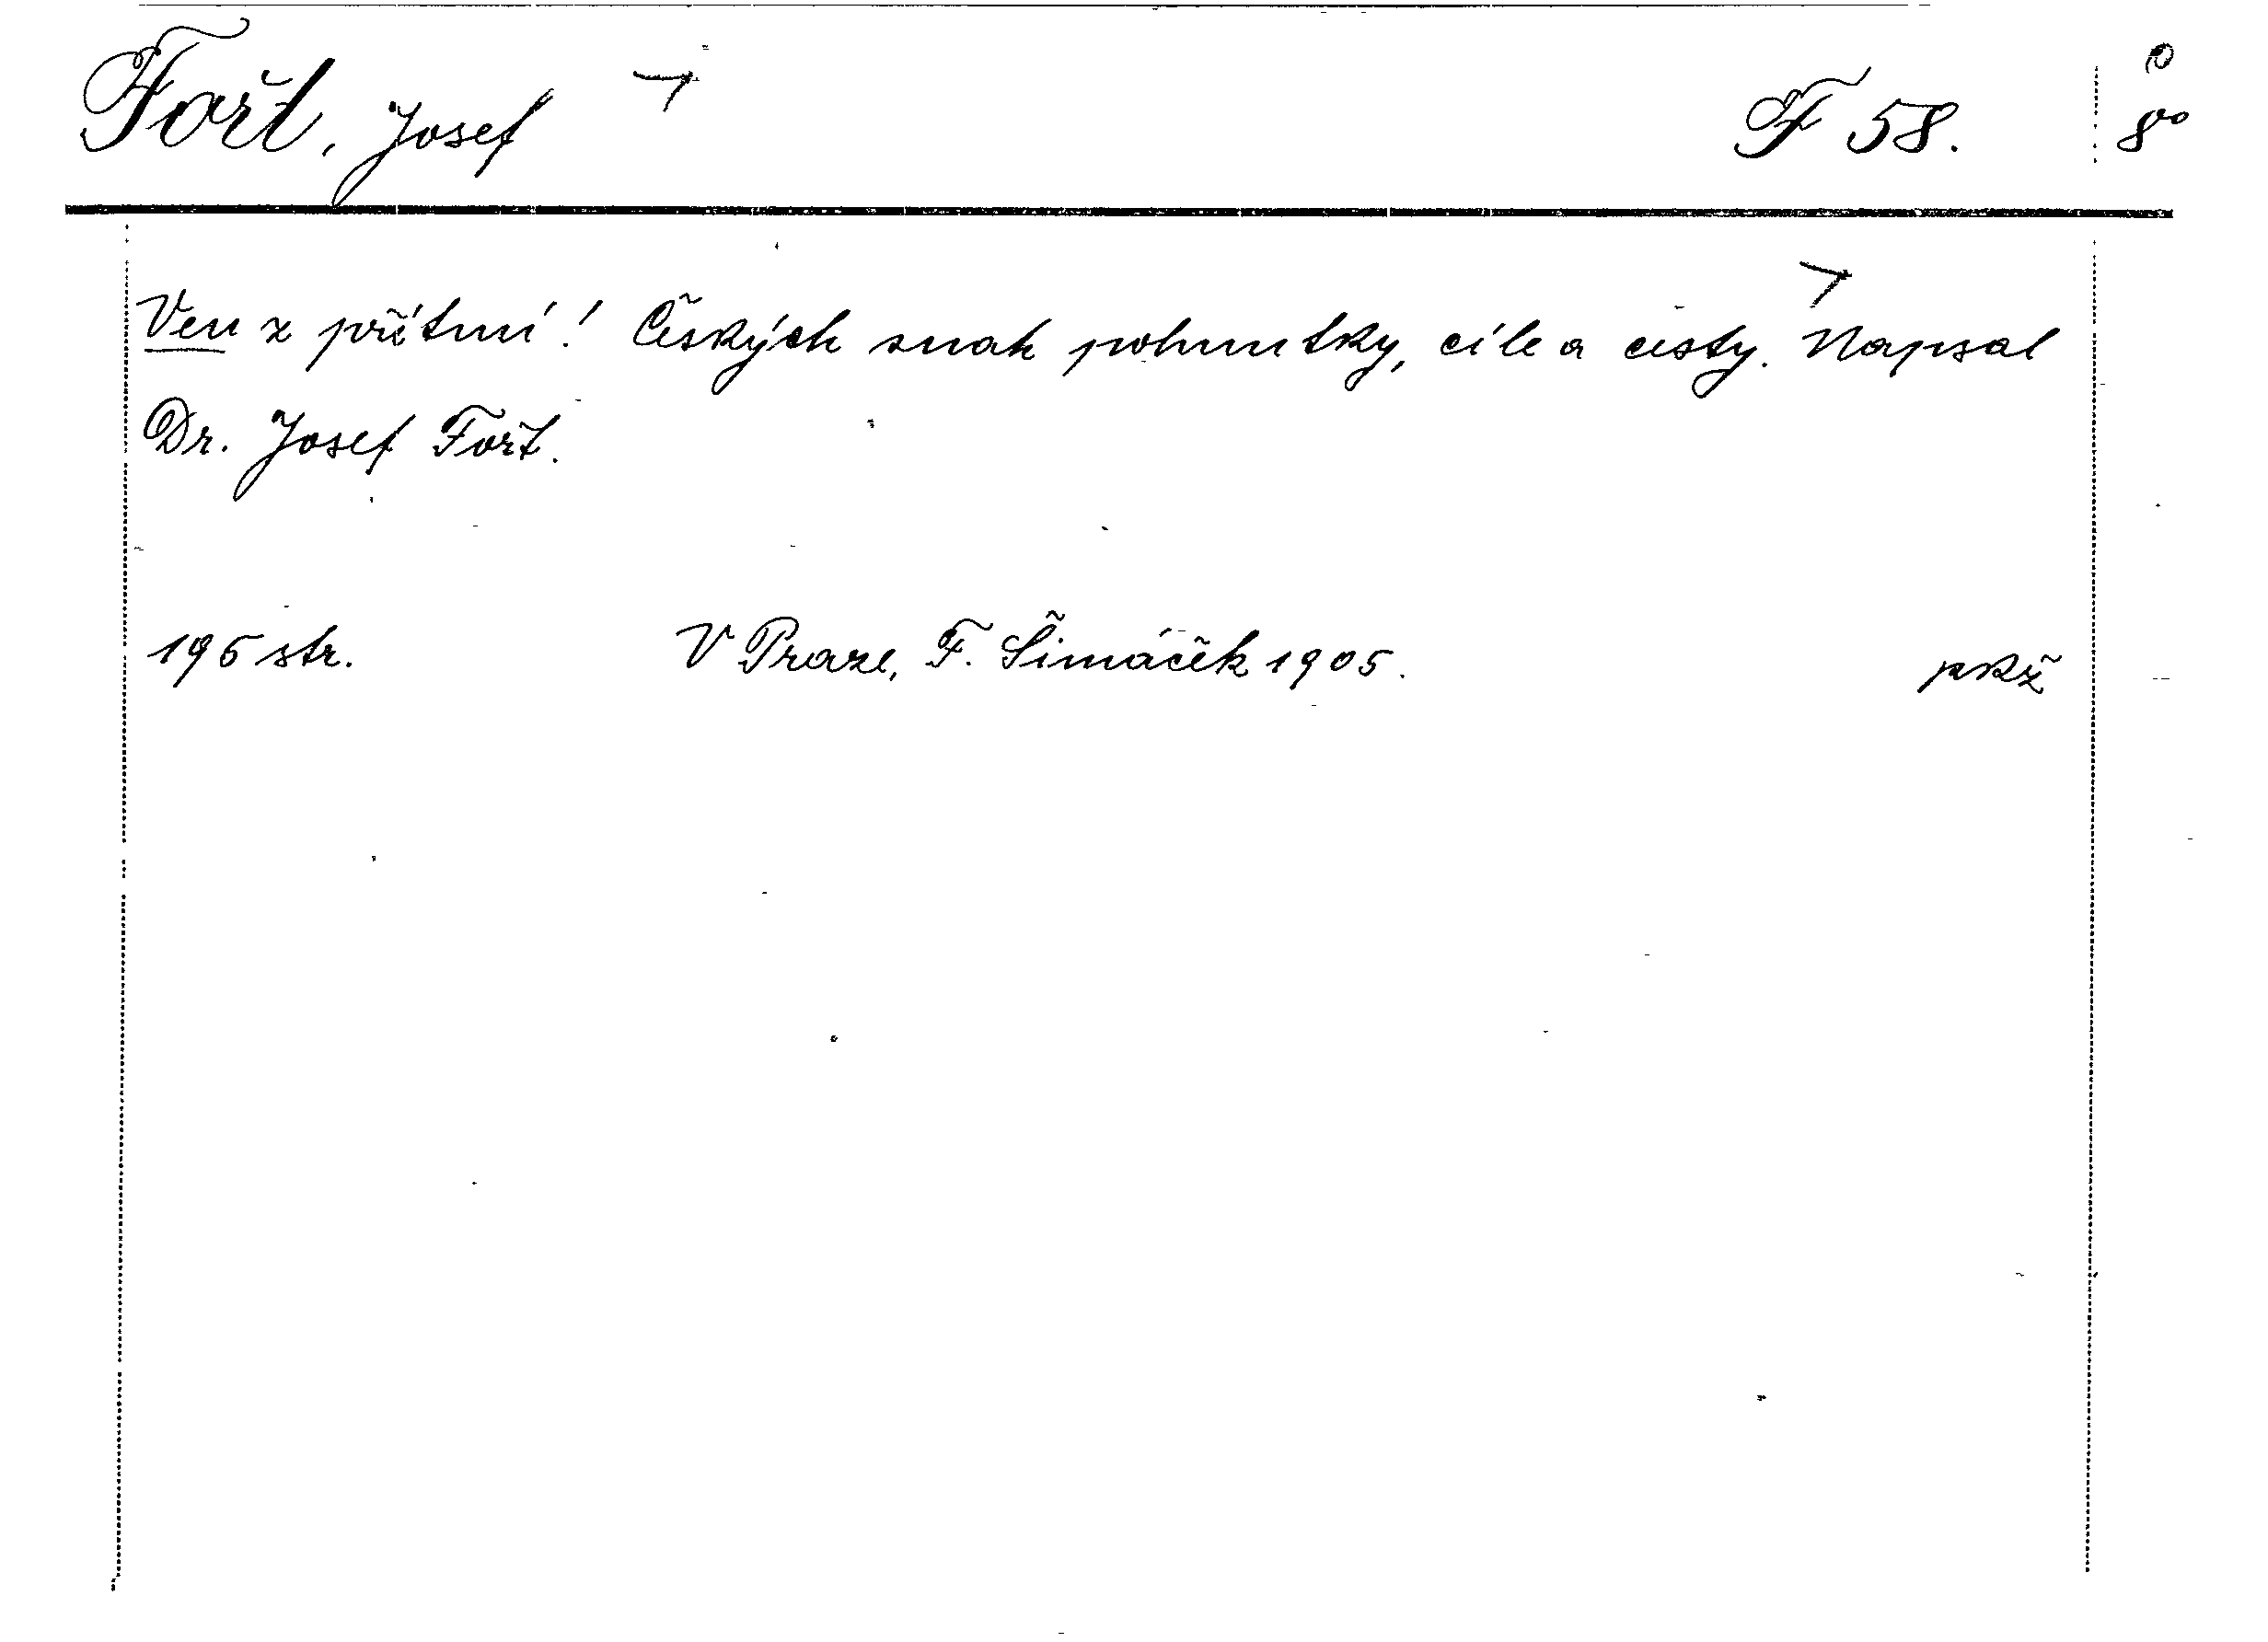 Fořt, Josef F 58. 8°
Ven z přítmí! Českých snah pohnutky, cíle a cesty. Napsal
Dr. Josef Fořt.
195 str. V Praze, F. Šimáček 1905. pkž